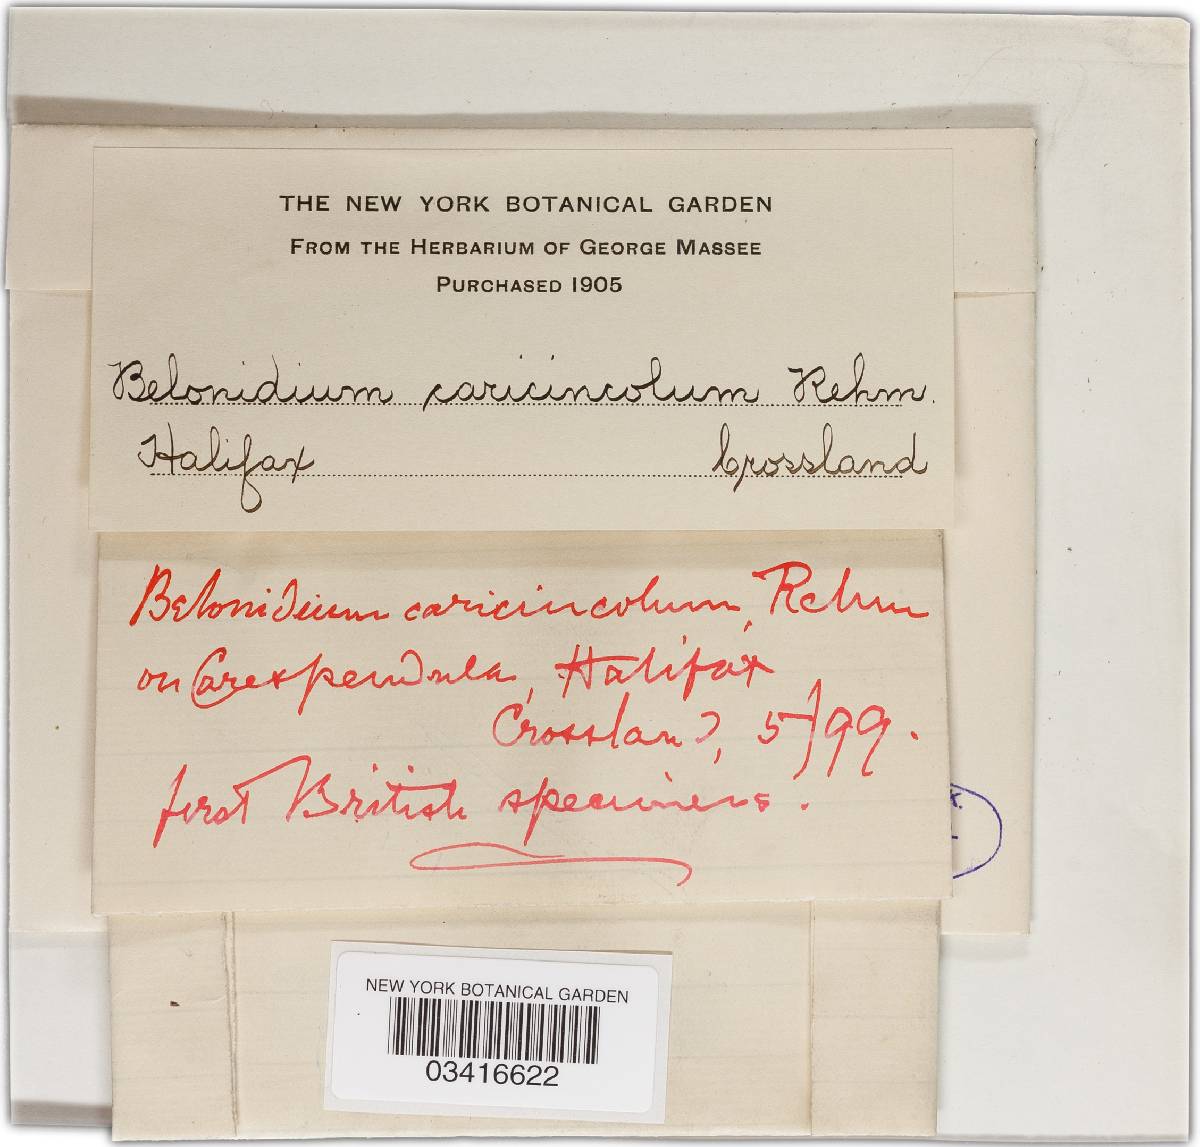 THE NEW YORK BOTANICAL GARDEN
FROM THE HERBARIUM OF GEORGE MASSEE
PURCHASED 1905
Belonidium caricincolum Rehm.
Halifax Crossland
Belonidium caricincolum, Rehm
on Carex pendula, Halifax
Crossland, 5/99.
first British specimens.
K.
NEW YORK BOTANICAL GARDEN
03416622